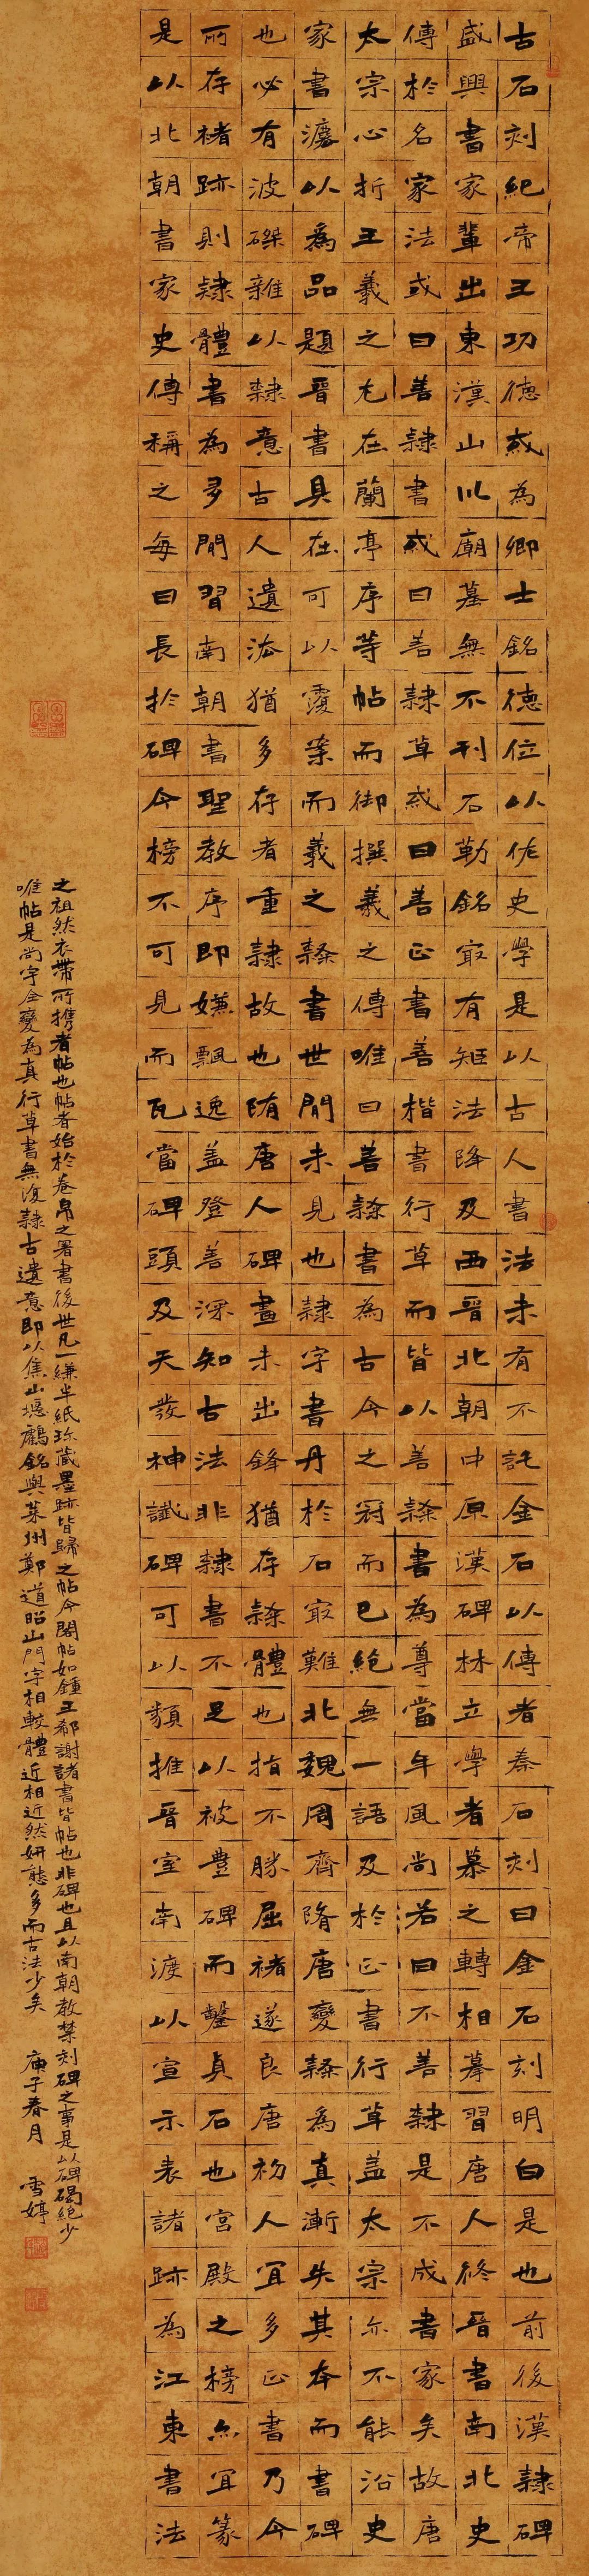 古石刻紀帝王功德或為卿士銘德位以佐史學是以古人書法未有不託金石以傳者秦石刻曰金石刻明白是也前後漢隸碑
盛興書家輩出東漢山川廟墓無不刊石勒銘最有矩法降及西晉北朝中原漢碑林立學者慕之轉相摹習唐人修晉書南北史
傳於名家法或曰善隸書或曰善隸草或曰善正書善楷書行草而皆以善隸書為尊當年風尚若曰不善隸是不成書家矣故唐
太宗心折王羲之尤在蘭亭序等帖而御撰羲之傳唯曰善隸書為古今之冠而已絕無一語及於正書行草蓋太宗亦不能沿史
家書灋以為品題晉書具在可以覆案而羲之隸書世間未見也隸字書丹於石最難北魏周齊隋唐變隸為真漸失其本而書碑
也必有波磔雜以隸意古人遺法猶多存者重隸故也隋唐人碑畫未出鋒猶存隸體也指不勝屈褚遂良唐初人宜多正書乃今
所存褚跡則隸體書為多間習南朝書聖教序即嫌飄逸蓋登善深知古法非隸書不足以被豐碑而鑿貞石也宮殿之榜亦宜篆
是以北朝書家史傳稱之每曰長於碑今榜不可見而瓦當碑頭及天發神讖碑可以類推晉室南渡以宣示表諸跡為江東書法
之祖然衣帶所攜者帖也帖者始於卷帛之署書後世凡一縑半紙珍藏墨跡皆歸之帖今閣帖如鍾王郗謝諸書皆帖也非碑也且以南朝敕禁刻碑之事是以碑碣絕少
唯帖是尚字全變為真行草書無復隸古遺意即以焦山瘞鶴銘與萊州鄭道昭山門字相較體近相近然妍態多而古法少矣 庚子春月 雪婷